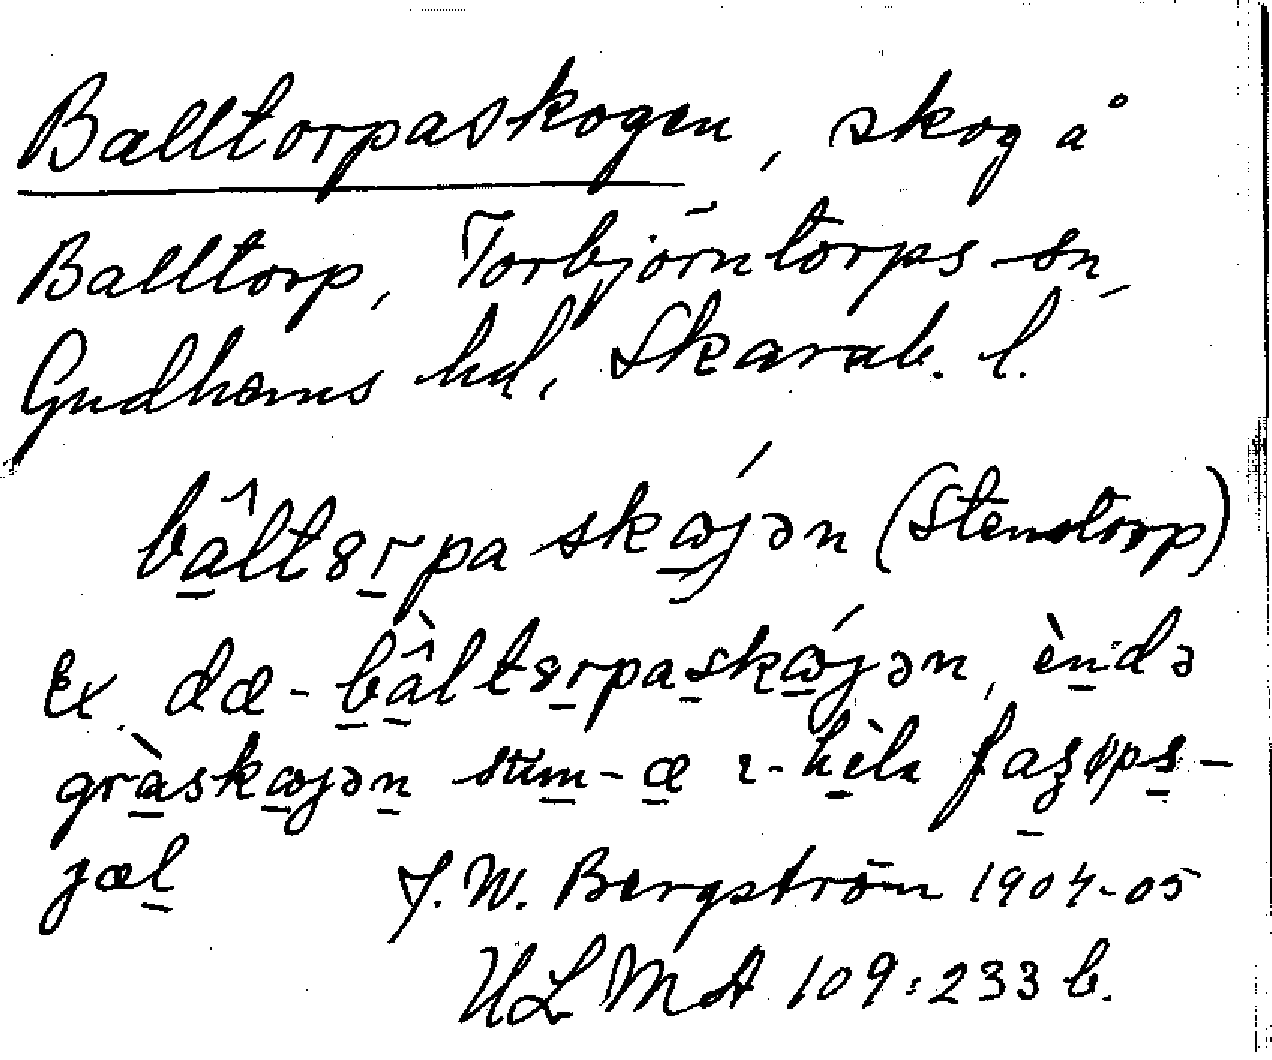 Balltorpaskogen, skog å
Balltorp, Torbjörntorps sn,
Gudhems hd, Skarab. l.
bâlt8rpa skæjən (Stenstorp)
Ex. dæ - bâlt8rpaskæjən, èndə
gràskæjən sum - æ ɩ - hèla faʂøps-
jæl J. W. Bergström 1904-05
ULMA 109:233 b.